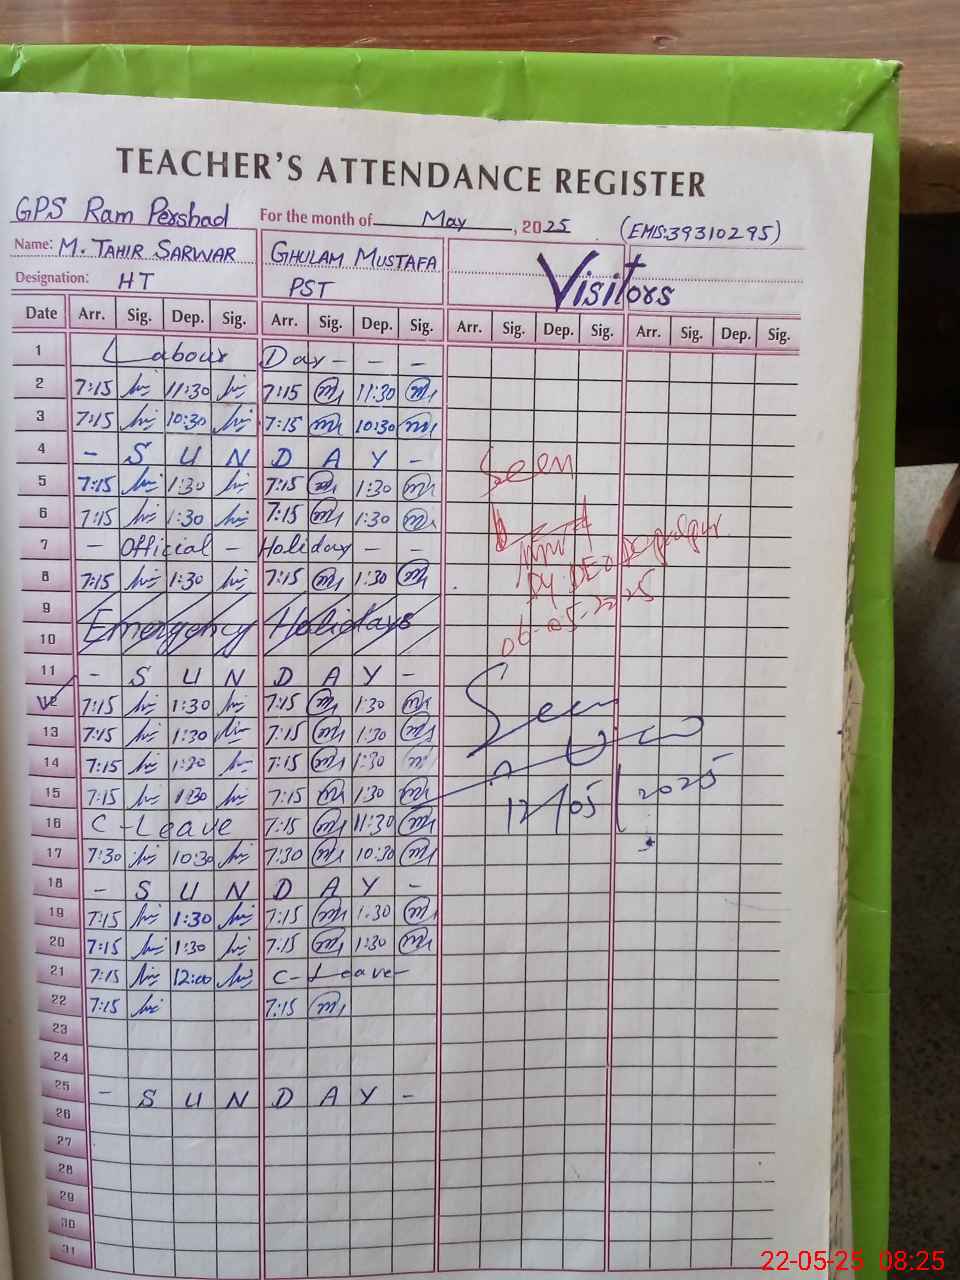 TEACHER'S ATTENDANCE REGISTER
GPS Ram Pershad For the month of May, 2025 (EMIS:39310295)
Name: M. TAHIR SARWAR GHULAM MUSTAFA Visitors
Designation: HT PST
Date Arr. Sig. Dep. Sig. Arr. Sig. Dep. Sig. Arr. Sig. Dep. Sig. Arr. Sig. Dep. Sig.
1 Labour Day - - -
2 7:15 11:30 7:15 11:30
3 7:15 10:30 7:15 10:30
4 - S U N D A Y -
5 7:15 1:30 7:15 1:30
Seen
6 7:15 1:30 7:15 1:30
7 - Official - Holiday - -
8 7:15 1:30 7:15 1:30
Dy. DEO
06-05-2025
9
10 Emergency Holidays
11 - S U N D A Y -
12 7:15 1:30 7:15 1:30
Seen
13 7:15 1:30 7:15 1:30
14 7:15 1:30 7:15 1:30
15 7:15 1:30 7:15 1:30
12/05/2025
16 C-Leave 7:15 11:30
17 7:30 10:30 7:30 10:30
18 - S U N D A Y -
19 7:15 1:30 7:15 1:30
20 7:15 1:30 7:15 1:30
21 7:15 12:00 C-Leave-
22 7:15 7:15
23
24
25 - S U N D A Y -
26
27
28
29
30
31
22-05-25 08:25